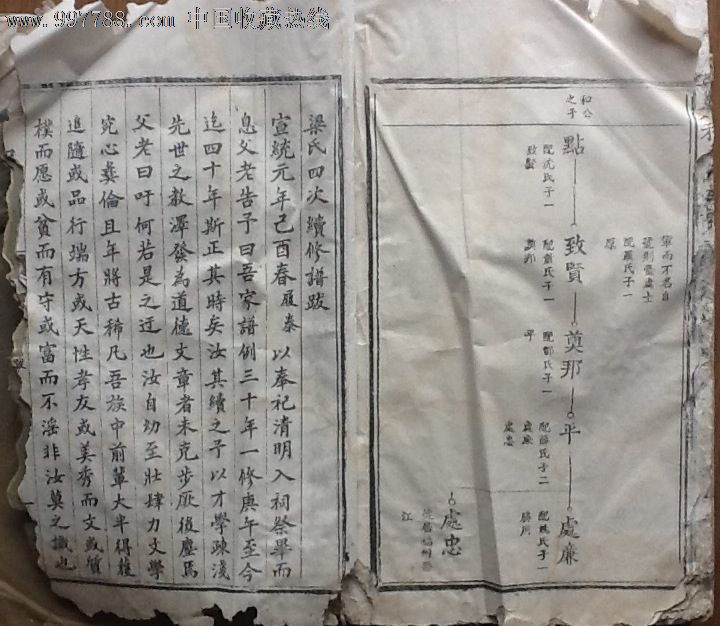 www.997788.com 中国收藏热线
和公
之子
點
配沈氏子一
致賢
致賢
配童氏子一
奠邦
奠邦
配鄧氏子一
平
平
配薛氏子二
處廉
處忠
處廉
配魏氏子一
處忠
江
梁氏四次續修譜跋
宣統元年己酉春履泰以奉祀清明入祠祭畢而
息父老告予曰吾家譜例三十年一修庚午至今
迄四十年斯正其時矣汝其續之予以才學疎淺
先世之教澤發為道德文章者未克步厥後塵焉
父老曰吁何若是之迂也汝自幼至壯肆力文學
究心彝倫且年將古稀凡吾族中前輩大半得穫
追隨或品行端方或天性孝友或美秀而文或質
樸而愿或貧而有守或富而不淫非汝莫之識也